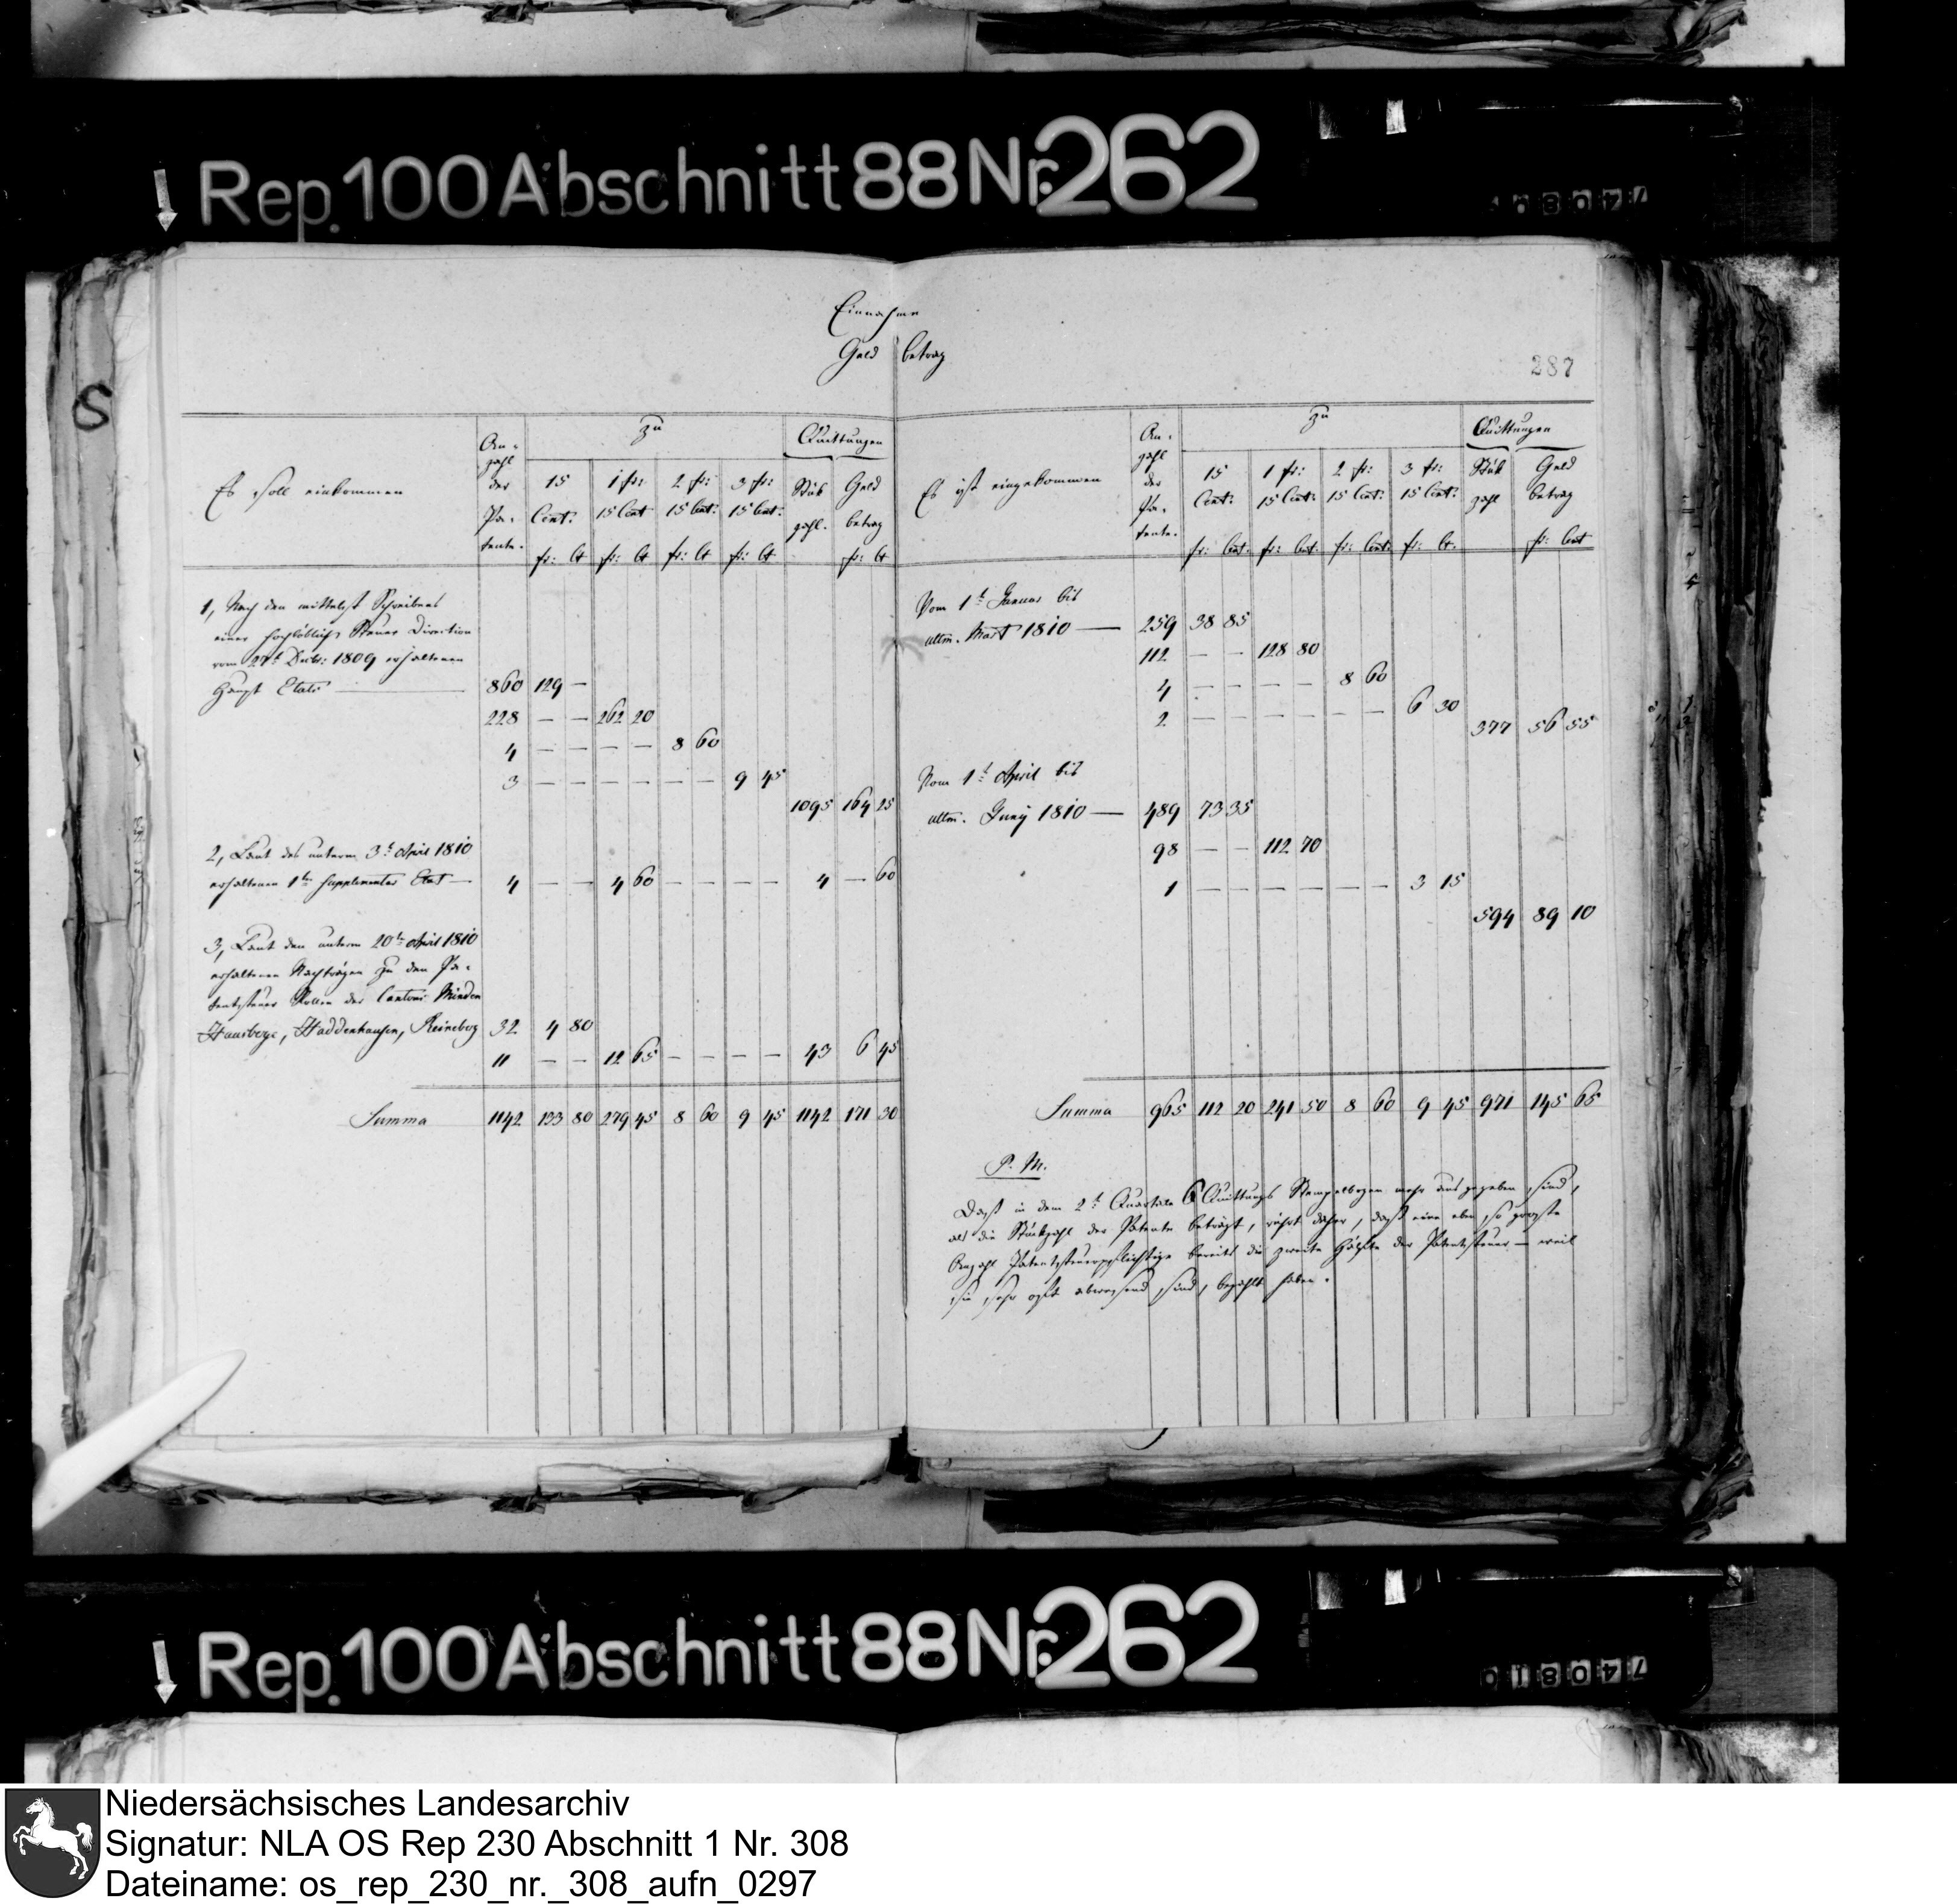 Rep. 100 Abschnitt 88 Nr. 262
Einnahme
Geld betrag
287
Es soll einkommen
An-
zahl
der
Pa-
tente.
zu
Quittungen
15
Cent:
fr: Ct
1 fr:
15 Cent
fr: Ct
2 fr:
15 Cent:
fr: Ct
3 fr:
15 Cent:
fr: Ct
Stük
zahl.
Geld
betrag
fr: Ct
1, Nach den mittelst Schreibens
einer hochlöblich Steuer Direction
vom 27t Decbr: 1809 erhaltenen
Haupt Etats — 860 129 —
228 — — 262 20
4 — — — — 8 60
3 — — — — — — 9 45
1095 164 25
2, Laut des unterm 3t April 1810
erhaltenen 1ten Supplementar Etat — 4 — — 4 60 — — — — 4 — 60
3, Laut den unterm 20ten April 1810
erhaltenen Nachträgen zu den Pa-
tentsteuer Rollen der Cantons Minden
Hausberge, Haddenhausen, Reineberg 32 4 80
11 — — 12 65 — — — — 43 6 45
Summa 1142 133 80 279 45 8 60 9 45 1142 171 30
Es ist eingekommen
An-
zahl
der
Pa-
tente.
zu
Quittungen
15
Cent:
fr: Cent.
1 fr:
15 Cent:
fr: Cent.
2 fr:
15 Cent:
fr: Cent:
3 fr:
15 Cent:
fr: Ct.
Stük
zahl
Geld
betrag
fr: Cent
Vom 1t Januar bis
ultm. Mart 1810 — 259 38 85
112 — — 128 80
4 — — — — 8 60
2 — — — — — — 6 30
377 56 55
Vom 1t April bis
ultm. Juny 1810 — 489 73 35
98 — — 112 70
1 — — — — — — 3 15
594 89 10
Summa 965 112 20 241 50 8 60 9 45 971 145 65
P. M.
Daß in dem 2t Quartale 6 Quittungs Stempelbogen mehr ausgegeben sind,
als die Stükzahl der Patente beträgt, rührt daher, daß eine eben so große
Anzahl Patentsteuerpflichtige bereits die zweite Hälfte der Patentsteuer — weil
sie sehr oft abwesend sind, bezahlt haben.
Rep. 100 Abschnitt 88 Nr. 262
740810
Niedersächsisches Landesarchiv
Signatur: NLA OS Rep 230 Abschnitt 1 Nr. 308
Dateiname: os_rep_230_nr._308_aufn_0297